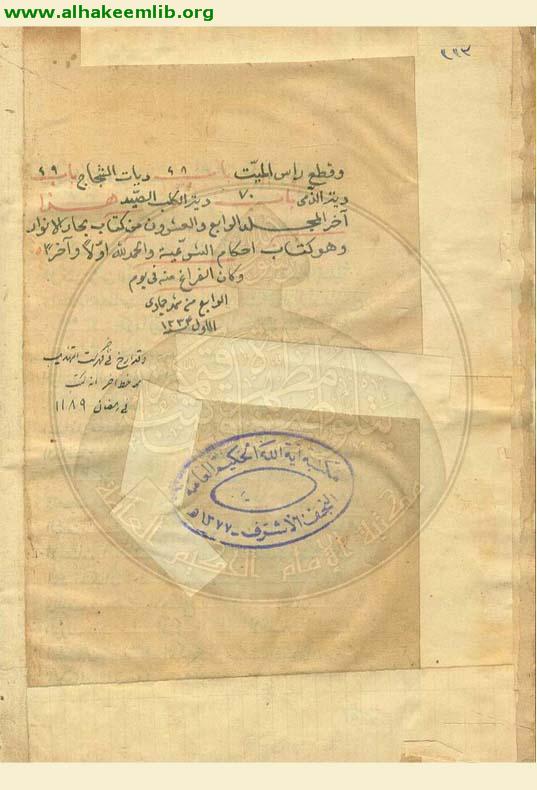 www.alhakeemlib.org
وقطع رأس الميت باب ٦٨ ديات الشجاج باب ٦٩
دية الذمى باب ٧٠ دية الكلب الصيد هذا
آخر المجلد الرابع والعشرون من كتاب بحار الانوار
وهو كتاب احكام الشرعية والحمد لله اولاً وآخراً
وكان الفراغ منه فى يوم
الرابع من شهر جمادى
الاول ١٢٣٤
وقد ارخ فى
خط اخر انه كتب
فى رمضان ١١٨٩
مكتبة آية الله الحكيم العامة
النجف الاشرف - ١٣٧٧ هـ
مكتبة الإمام الحكيم العامة